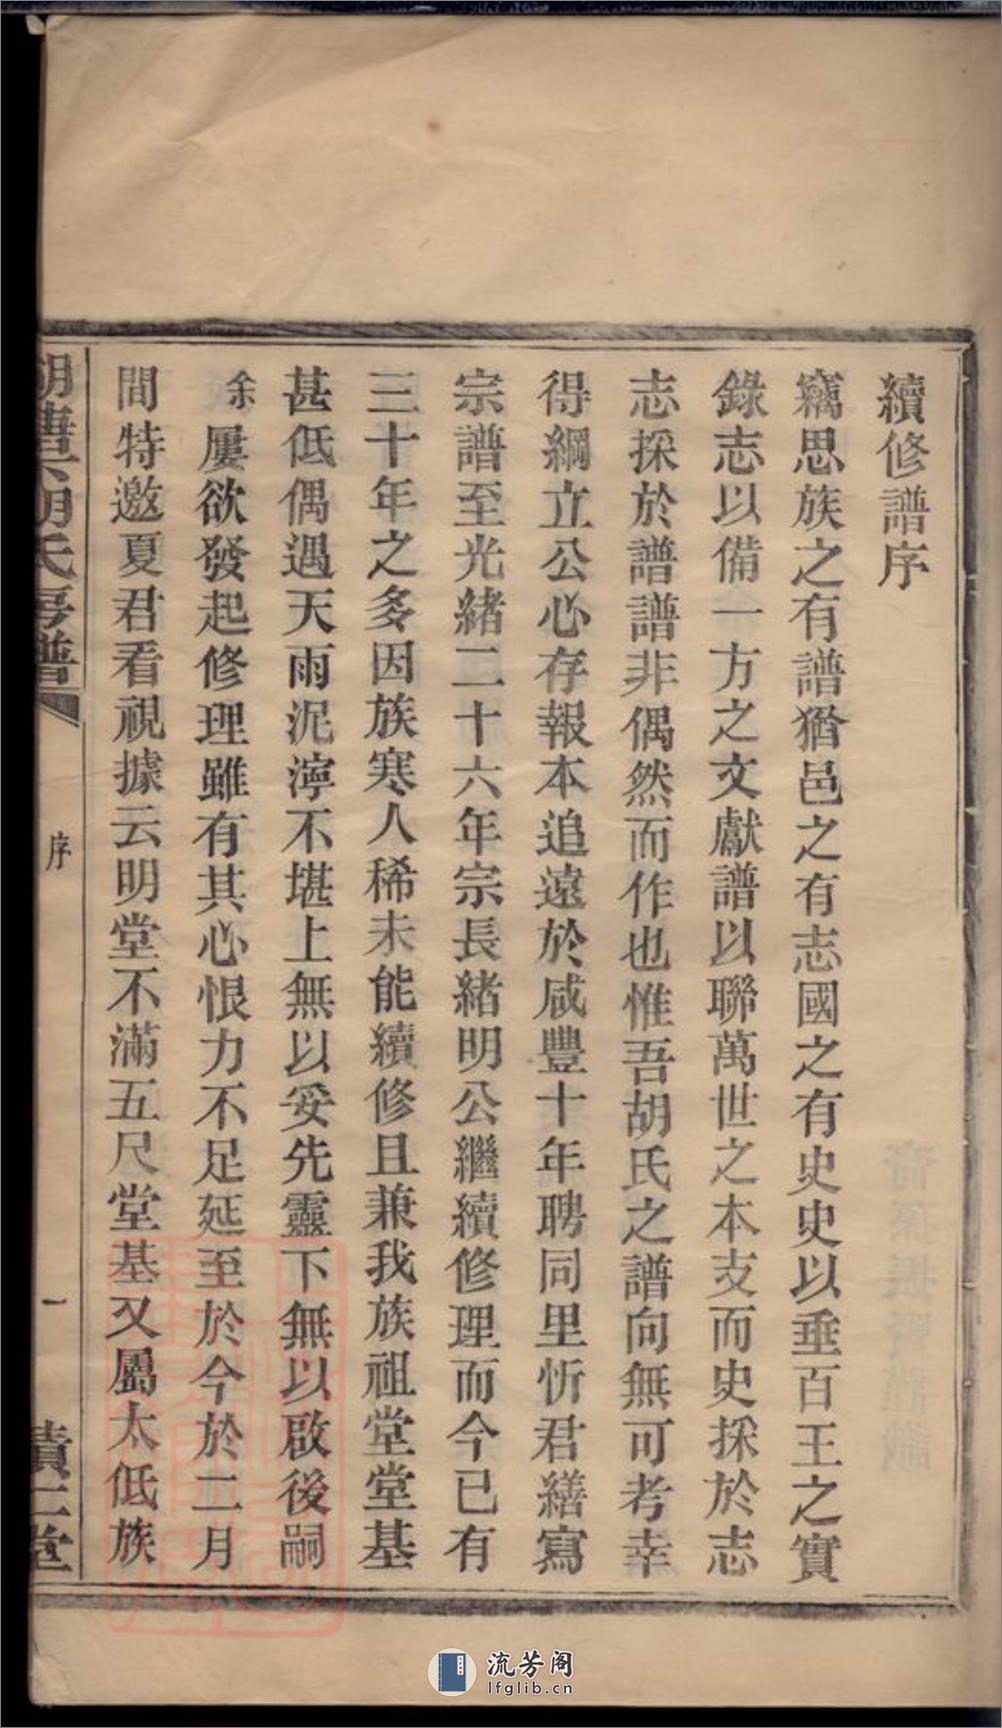 續修譜序
竊思族之有譜猶邑之有志國之有史史以垂百王之實
錄志以備一方之文獻譜以聯萬世之本支而史採於志
志採於譜譜非偶然而作也惟吾胡氏之譜向無可考幸
得綱立公心存報本追遠於咸豐十年聘同里忻君繕寫
宗譜至光緒二十六年宗長緒明公繼續修理而今已有
三十年之多因族寒人稀未能續修且兼我族祖堂堂基
甚低偶遇天雨泥濘不堪上無以妥先靈下無以啟後嗣
余屢欲發起修理雖有其心恨力不足延至於今於二月
間特邀夏君看視據云明堂不滿五尺堂基又屬太低族
胡氏房譜
序
一
堂
流芳阁
lfglib.cn